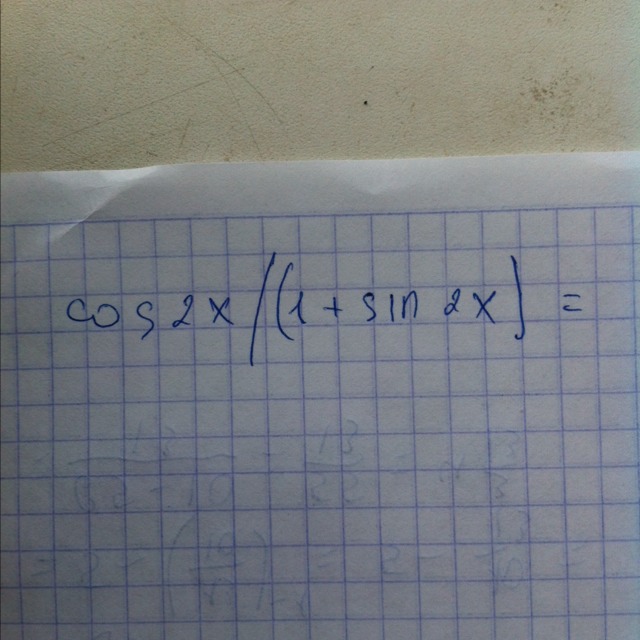 cos 2x / (1 + sin 2x) =